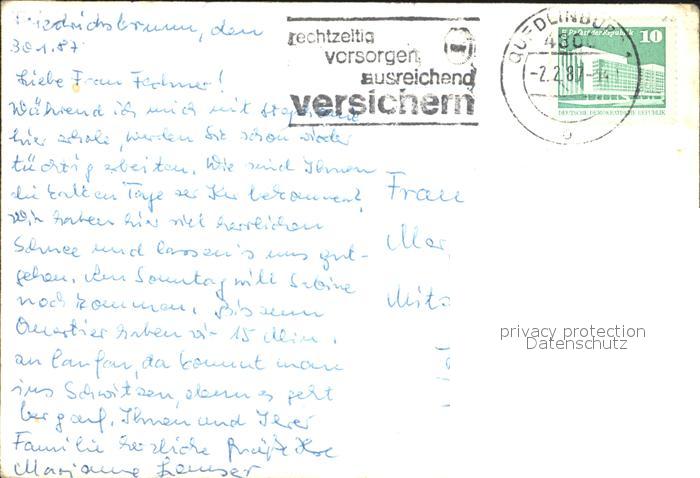 Friedrichsbrunn, den
30.1.87
Liebe Frau Fechner!
Während ich mich mit
hier erhole, werden Sie schon wieder
tüchtig arbeiten. Wie sind Ihnen
die kalten Tage der Kur bekommen?
Wir haben hier viel herrlichen
Schnee und lassen's uns gut-
gehen. Am Sonntag will Sabine
noch kommen. Bis zum
Quartier haben wir 15 Min.
zu laufen, da kommt man
ins Schwitzen, denn es geht
bergauf. Ihnen und Ihrer
Familie herzliche Grüße Ihre
Marianne
rechtzeitig
vorsorgen,
ausreichend
versichern
QUEDLINBURG 1
430
-2.2.87-
Palast der Republik 10
DEUTSCHE DEMOKRATISCHE REPUBLIK
Frau
Mar
Mits
privacy protection
Datenschutz